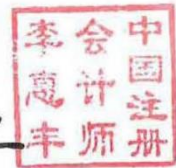 中国注册
会计师
李惠丰